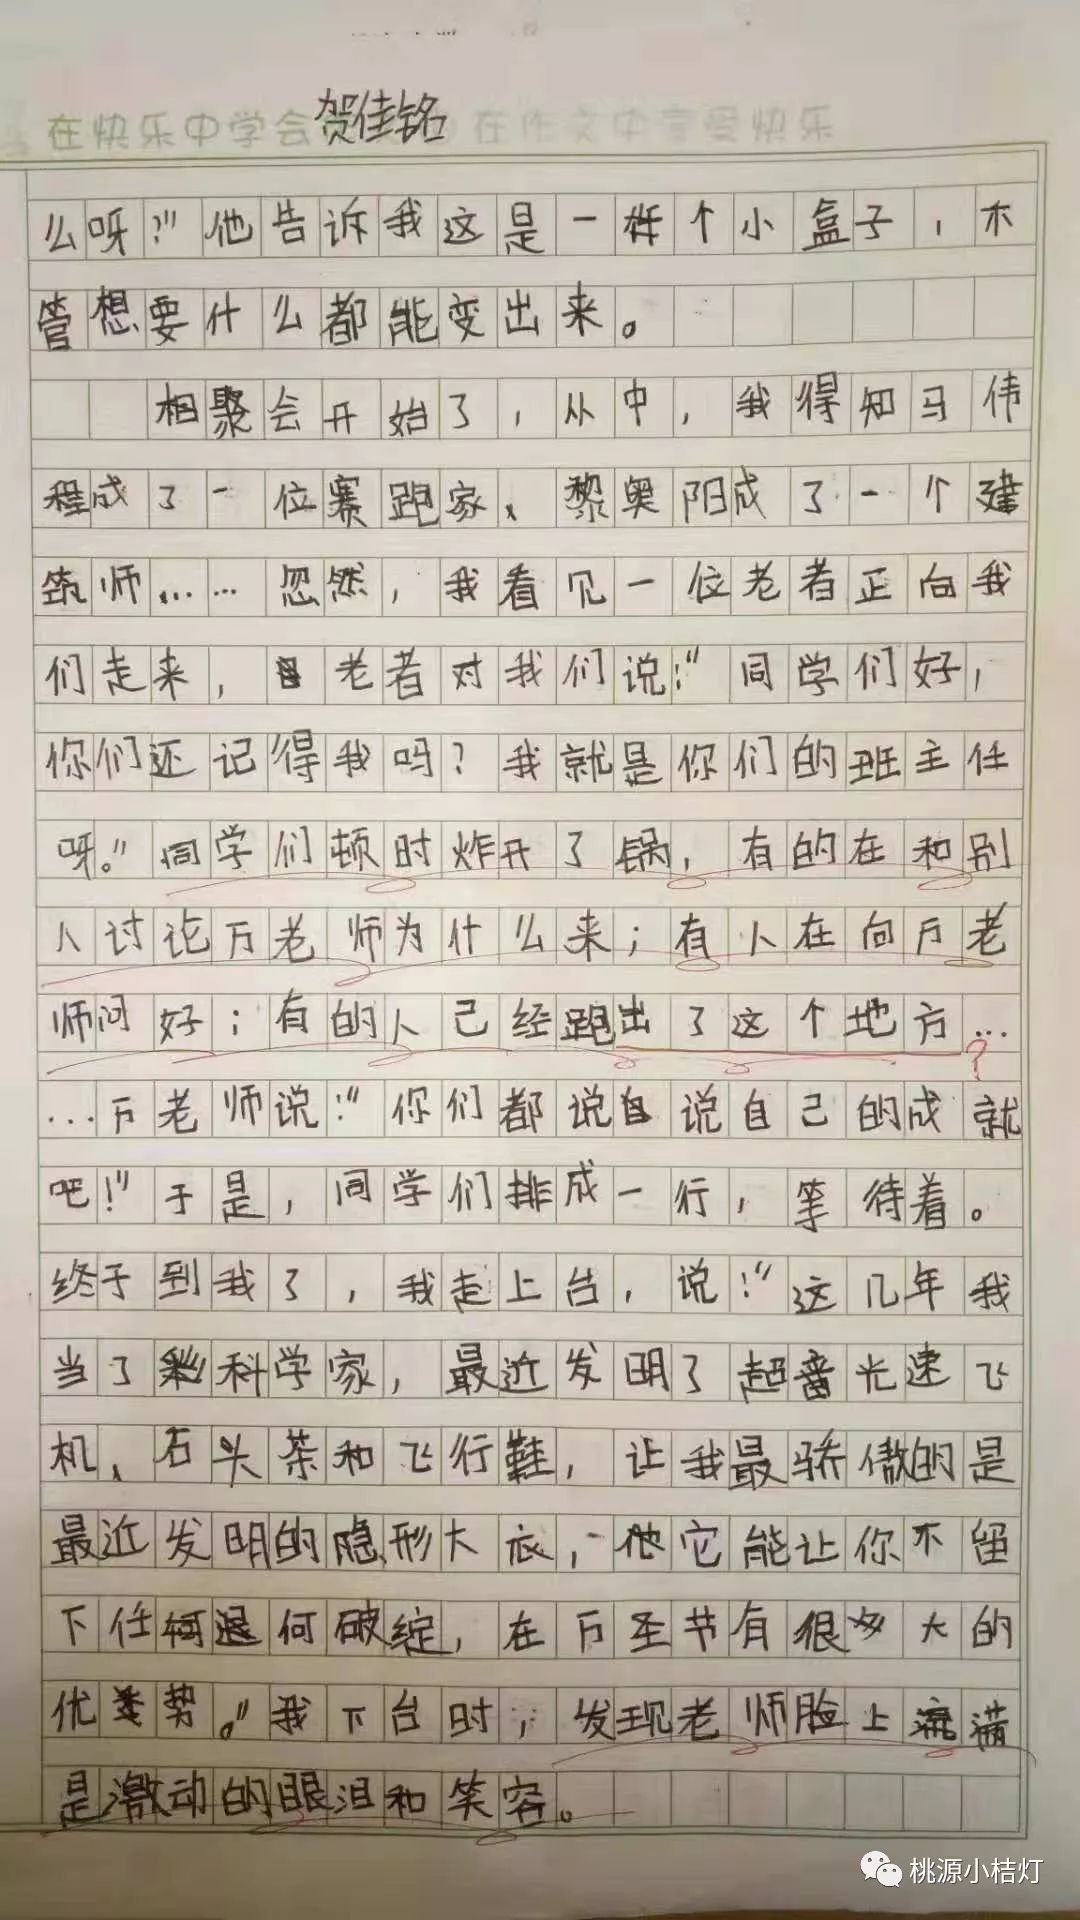 贺佳铭
在快乐中学会 在作文中享受快乐
么呀?”他告诉我这是一个小盒子,不
管想要什么都能变出来。
相聚会开始了,从中,我得知马伟
程成了一位赛跑家、黎奥阳成了一个建
筑师……忽然,我看见一位老者正向我
们走来,老者对我们说:“同学们好,
你们还记得我吗?我就是你们的班主任
呀。”同学们顿时炸开了锅,有的在和别
人讨论万老师为什么来;有人在向万老
师问好;有的人已经跑出了这个地方…
?
…万老师说:“你们都说说自己的成就
吧!”于是,同学们排成一行,等待着。
终于到我了,我走上台,说:“这几年我
当了科学家,最近发明了超音光速飞
机、石头茶和飞行鞋,让我最骄傲的是
最近发明的隐形大衣,它能让你不留
下任何破绽,在万圣节有很多大的
优势。”我下台时,发现老师脸上流满
是激动的眼泪和笑容。
桃源小桔灯